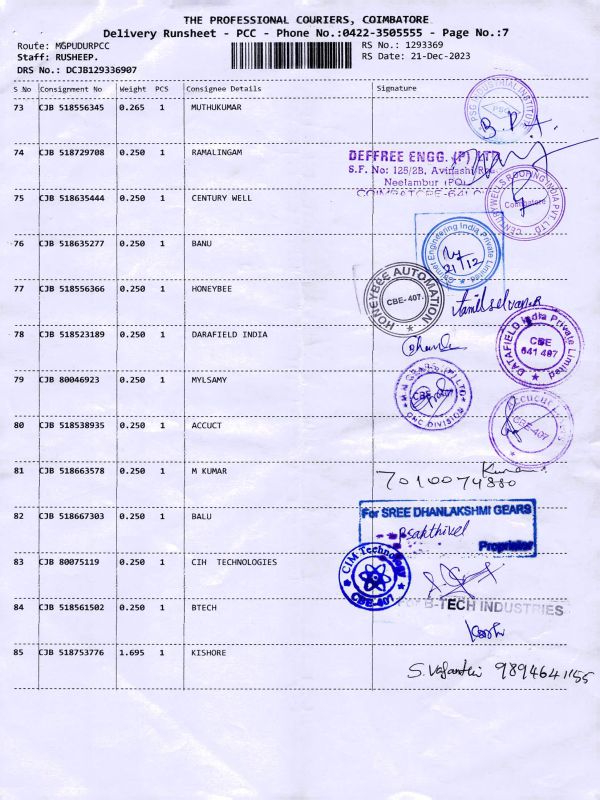 THE PROFESSIONAL COURIERS, COIMBATORE
Delivery Runsheet - PCC - Phone No.:0422-3505555 - Page No.:7
Route: MGPUDURPCC RS No.: 1293369
Staff: RUSHEEP. RS Date: 21-Dec-2023
DRS No.: DCJB129336907
S No Consignment No Weight PCS Consignee Details Signature
73 CJB 518556345 0.265 1 MUTHUKUMAR
PSG INDUSTRIAL INSTITUTE
PSG
74 CJB 518729708 0.250 1 RAMALINGAM
DEFFREE ENG. (P) LTD
S.F. No: 125/2B, Avinashi
Neelambur (PO)
75 CJB 518635444 0.250 1 CENTURY WELL
CENTURYWELLS ROOFING INDIA PVT. LTD.
Coimbatore
76 CJB 518635277 0.250 1 BANU
Engineering India Private Limited
21/12
77 CJB 518556366 0.250 1 HONEYBEE
HONEYBEE AUTOMATION
CBE-407.
Tamilselvan.R
78 CJB 518523189 0.250 1 DARAFIELD INDIA
DATAFIELD India Private Limited
CBE
641 407
79 CJB 80046923 0.250 1 MYLSAMY
GEARS (P) LTD
CNC DIVISION
80 CJB 518538935 0.250 1 ACCUCT
CBE-407.
81 CJB 518663578 0.250 1 M KUMAR
7010074880
82 CJB 518667303 0.250 1 BALU
For SREE DHANLAKSHMI GEARS
Proprietor
83 CJB 80075119 0.250 1 CIH TECHNOLOGIES
CIM Technology
CBE-407
84 CJB 518561502 0.250 1 BTECH
B-TECH INDUSTRIES
85 CJB 518753776 1.695 1 KISHORE
S. Vasanthi 9894641155